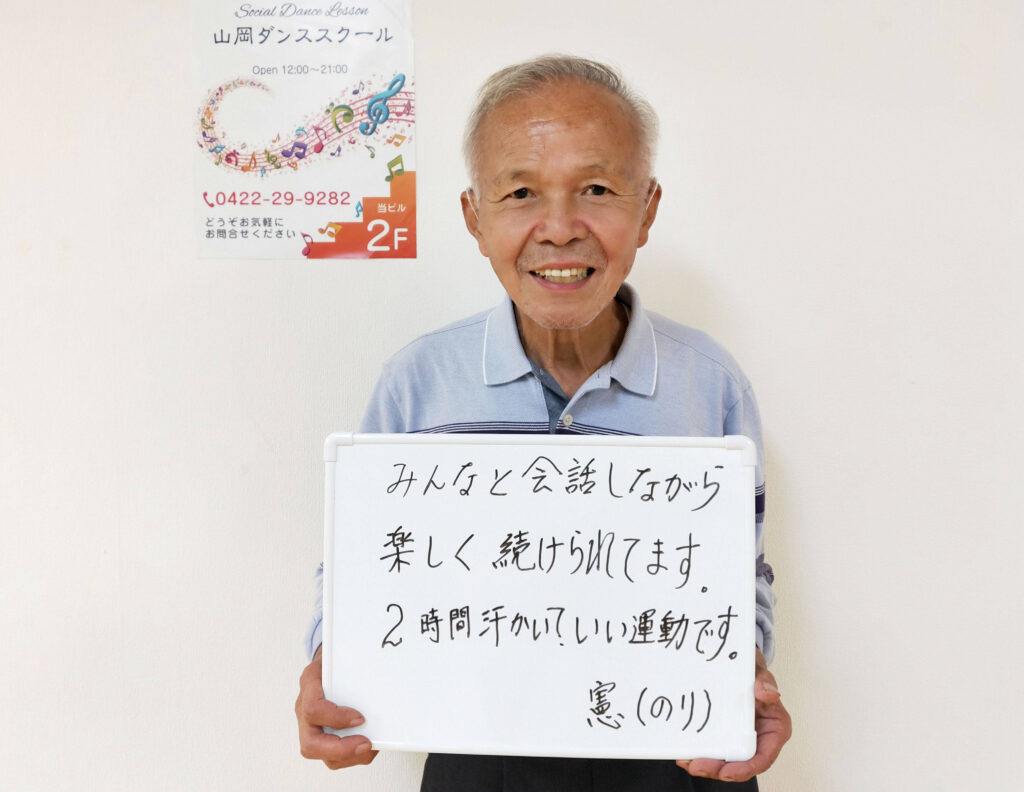 Social Dance Lesson
山岡ダンススクール
Open 12:00～21:00
0422-29-9282
どうぞお気軽に
お問合せください
当ビル
2F
みんなと会話しながら
楽しく続けられてます。
2時間汗かいて、いい運動です。
憲(のり)